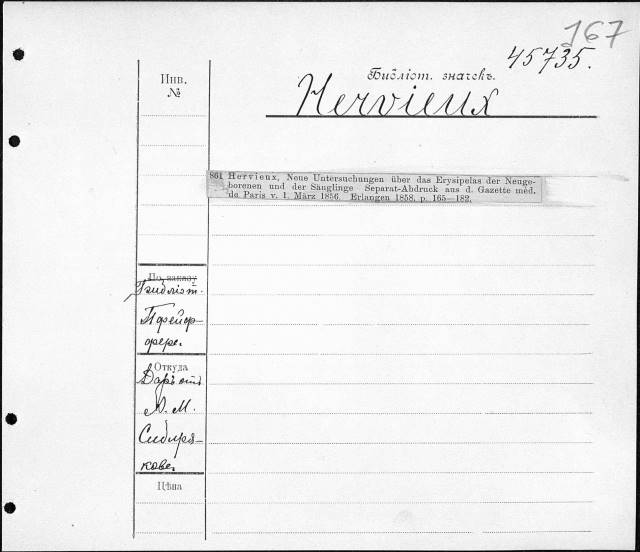 167
45735.
Инв.
№
Библіот. значекъ.
Hervieux
861 Hervieux, Neue Untersuchungen über das Erysipelas der Neuge-
borenen und der Säuglinge Separat-Abdruck aus d. Gazette méd.
de Paris v. 1. März 1856. Erlangen 1858, p. 165—182.
По заказу
Библіот.
Пфейф-
фера.
Откуда
Даръ отъ
М.
Сибиря-
кова.
Цѣна